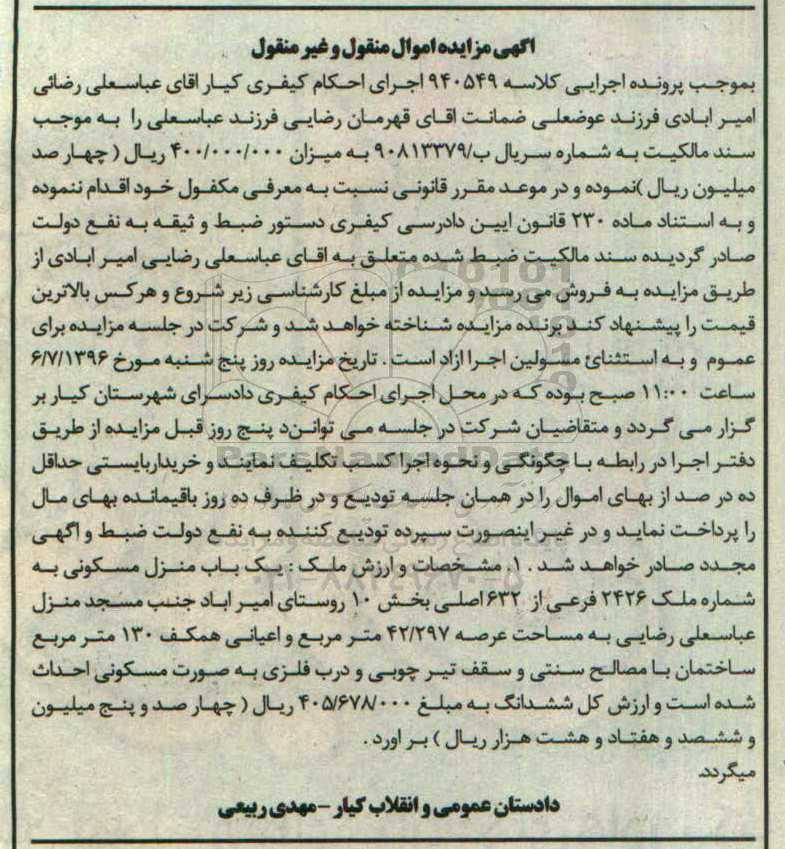 آگهی مزایده اموال منقول و غیر منقول
بموجب پرونده اجرایی کلاسه ۹۴۰۵۴۹ اجرای احکام کیفری کیار اقای عباسعلی رضائی
امیر ابادی فرزند عوضعلی ضمانت اقای قهرمان رضایی فرزند عباسعلی را به موجب
سند مالکیت به شماره سریال ب/۹۰۸۱۳۳۷۹ به میزان ۴۰۰/۰۰۰/۰۰۰ ریال ( چهار صد
میلیون ریال )نموده و در موعد مقرر قانونی نسبت به معرفی مکفول خود اقدام ننموده
و به استناد ماده ۲۳۰ قانون ایین دادرسی کیفری دستور ضبط و ثیقه به نفع دولت
صادر گردیده سند مالکیت ضبط شده متعلق به اقای عباسعلی رضایی امیر ابادی از
طریق مزایده به فروش می رسد و مزایده از مبلغ کارشناسی زیر شروع و هر کس بالاترین
قیمت را پیشنهاد کند برنده مزایده شناخته خواهد شد و شرکت در جلسه مزایده برای
عموم و به استثنائ مسولین اجرا ازاد است . تاریخ مزایده روز پنج شنبه مورخ ۶/۷/۱۳۹۶
ساعت ۱۱:۰۰ صبح بوده که در محل اجرای احکام کیفری دادسرای شهرستان کیار بر
گزار می گردد و متقاضیان شرکت در جلسه می توانن‌د پنج روز قبل مزایده از طریق
دفتر اجرا در رابطه با چگونگی و نحوه اجرا کسب تکلیف نمایند و خریداربایستی حداقل
ده در صد از بهای اموال را در همان جلسه تودیع و در ظرف ده روز باقیمانده بهای مال
را پرداخت نماید و در غیر اینصورت سپرده تودیع کننده به نفع دولت ضبط و اگهی
مجدد صادر خواهد شد . ۱. مشخصات و ارزش ملک : یک باب منزل مسکونی به
شماره ملک ۲۴۲۶ فرعی از ۶۳۲ اصلی بخش ۱۰ روستای امیر اباد جنب مسجد منزل
عباسعلی رضایی به مساحت عرصه ۴۲/۲۹۷ متر مربع و اعیانی همکف ۱۳۰ متر مربع
ساختمان با مصالح سنتی و سقف تیر چوبی و درب فلزی به صورت مسکونی احداث
شده است و ارزش کل ششدانگ به مبلغ ۴۰۵/۶۷۸/۰۰۰ ریال ( چهار صد و پنج میلیون
و ششصد و هفتاد و هشت هزار ریال ) بر اورد .
میگردد.
دادستان عمومی و انقلاب کیار –مهدی ربیعی
ParsNamadData
۰۲۱-۸۸۳۴۹۶۷۰-۵